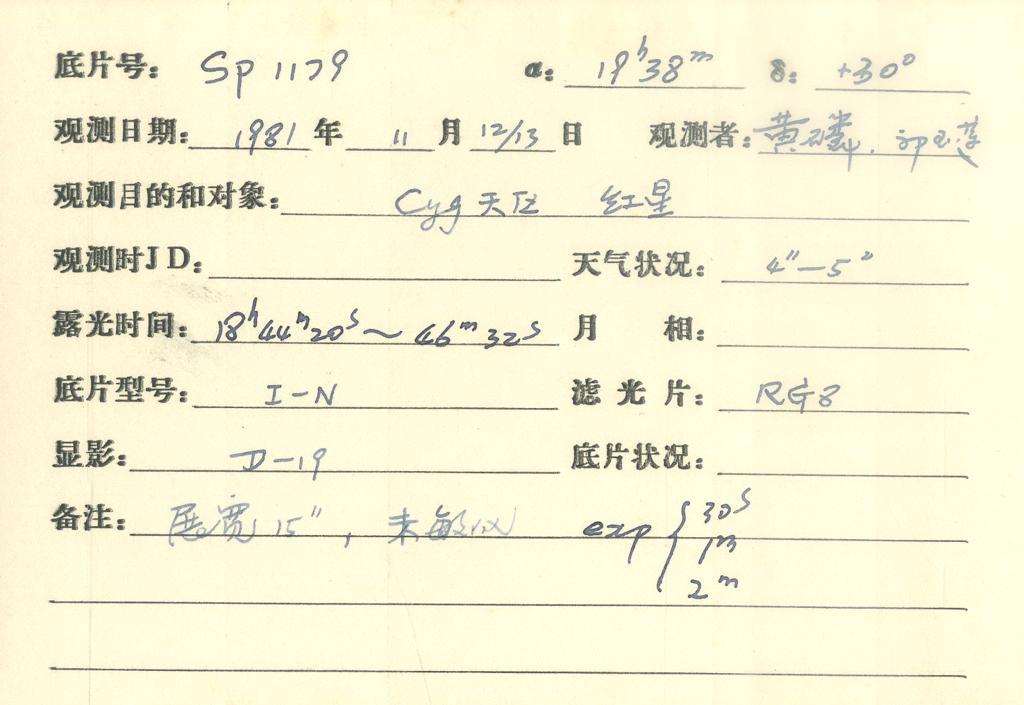 底片号: Sp 1179 α: 19ʰ38ᵐ δ: +30°
观测日期: 1981 年 11 月 12/13 日 观测者: 黄磷. 郭玉莲
观测目的和对象: Cyg 天区 红星
观测时JD: 天气状况: 4"—5"
露光时间: 18ʰ44ᵐ20ˢ~46ᵐ32ˢ 月 相:
底片型号: I-N 滤光片: RG8
显影: D-19 底片状况:
备注: 展宽15", 未敏化 exp { 30ˢ
1ᵐ
2ᵐ